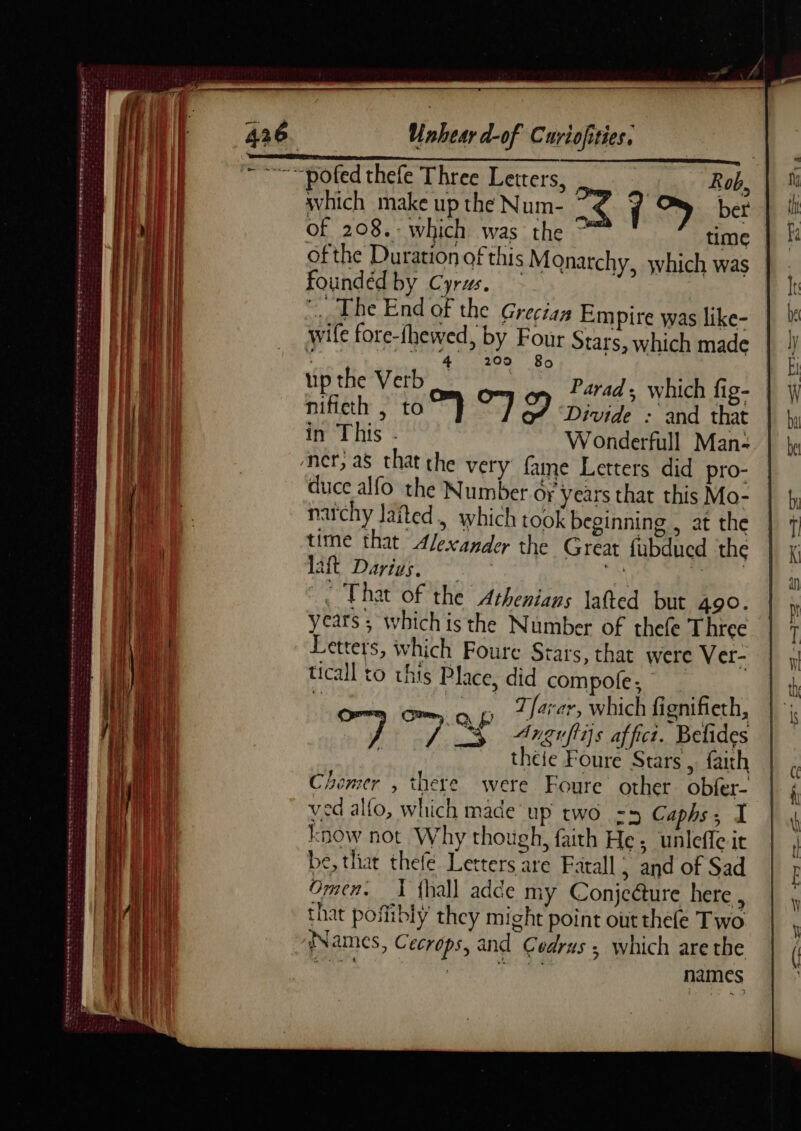 436 Unheard-of Curiosities.
posed these Three Letters, Rob,
which make up the Num- ber
of 208. which was the time
of the Duration of this Monarchy, which was
founded by Cyrus.
The End of the Grecian Empire was like-
wise fore-shewed, by Four Stars, which made
4 200 80
up the Verb Parad, which sig-
nifieth, to Divide : and that
in This Wonderfull Man-
ner; as that the very same Letters did pro-
duce also the Number of years that this Mo-
narchy lasted, which took beginning, at the
time that Alexander the Great subdued the
last Darius.
That of the Athenians lasted but 490.
years; which is the Number of these Three
Letters, which Foure Stars, that were Ver-
ticall to this Place, did compose;
Tsarar, which signifieth,
Angustijs affici. Besides
these Foure Stars, saith
Chomer, there were Foure other obser-
ved also, which made up two ככ Caphs; I
know not Why though, saith He; unlesse it
be, that these Letters are Fatall, and of Sad
Omen. I shall adde my Conjecture here,
that possibly they might point out these Two
Names, Cecrops, and Codrus; which are the
names